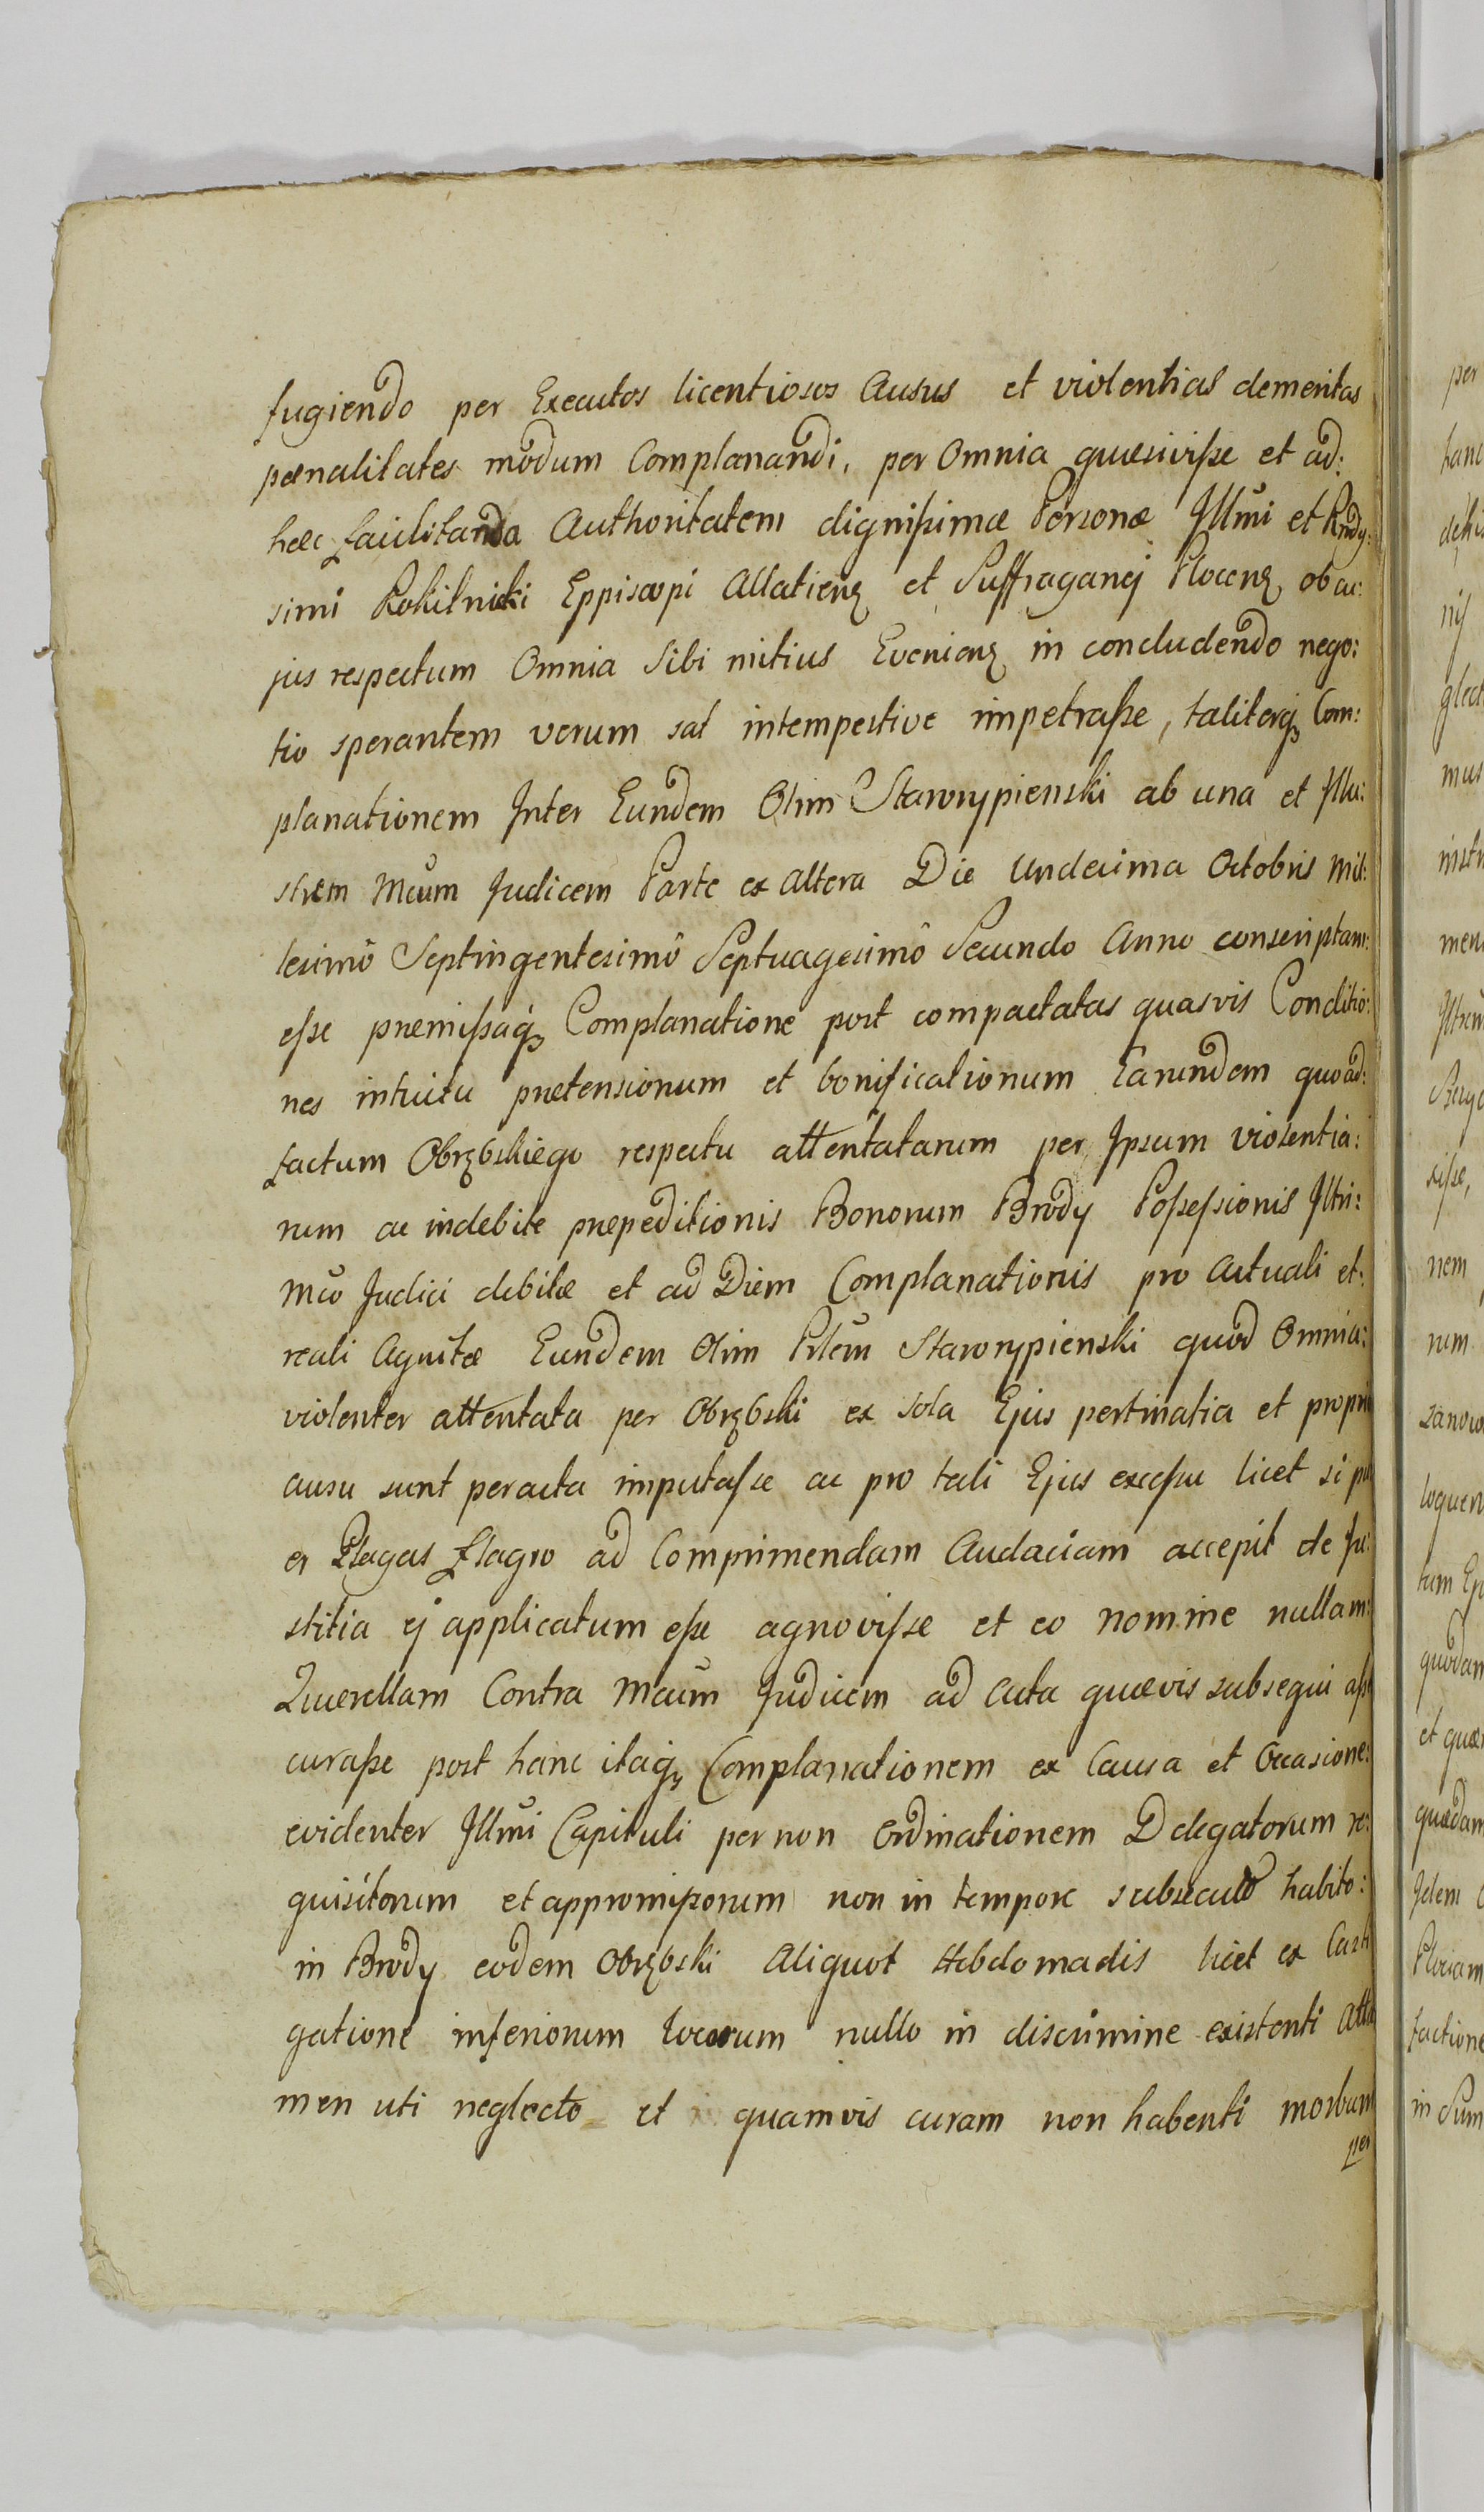 fugiendo per Executos licentiosos Ausus et violentias demeritas
pænalitates modum Complanandi, per Omnia quæsivisse et ad:
hæc facilitanda Authoritatem dignissimæ Personæ Illmi et Rndi:
simi Rokitnicki Eppiscopi Allatienẜ et Suffraganej Plocenẜ ob cu:
jus respectum Omnia Sibi mitius Evenienẜ in concludendo nego:
tio sperantem verum sat intempestive impetrasse, taliterq Com:
planationem Inter Eundem Olim Starorypienski ab una et Illu:
strem Mcum Judicem Parte ex altera Die Undecima Octobris Mil:
lesimo Septingentesimo Septuagesimo Secundo Anno conscriptam:
esse præmissaq Complanatione post compactatas quasvis Conditio:
nes intuitu prætensionum et bonificationum Earundem quoad:
factum Obrębskiego respectu attentatarum per Ipsum violentia:
rum ac indebite præpeditionis Bonorum Brody Possessionis Illri:
Mco Judici debitæ et ad Diem Complanationis pro Actuali et:
reali Agnitæ Eundem Olim Starorypienski quod Omnia:
violenter attentata per Obrębski ex sola Ejus pertinatia et propri
ausu sunt peracta imputasse ac pro tali Ejus excessu licet si
er Plagas flagro ad Comprimendam Audaciam accepit de Ju:
stitia ej applicatum esse agnovisse et eo nomine nullam:
Querellam Contra Mcum Judicem ad Acta quævis subsequi asse
curasse post hanc itaq Complanationem ex Causa et Occasione:
evidenter Illmi Capituli per non Ordinationem Delegatorum re:
quisitorum et appromissorum non in tempore subsecuto habito:
in Brody eodem Obrębski Aliquot Hebdomadis licet ex Casti
gatione inferiorum locorum nullo in discrimine existenti Atta
men uti neglecto et quamvis curam non habenti morbum
per